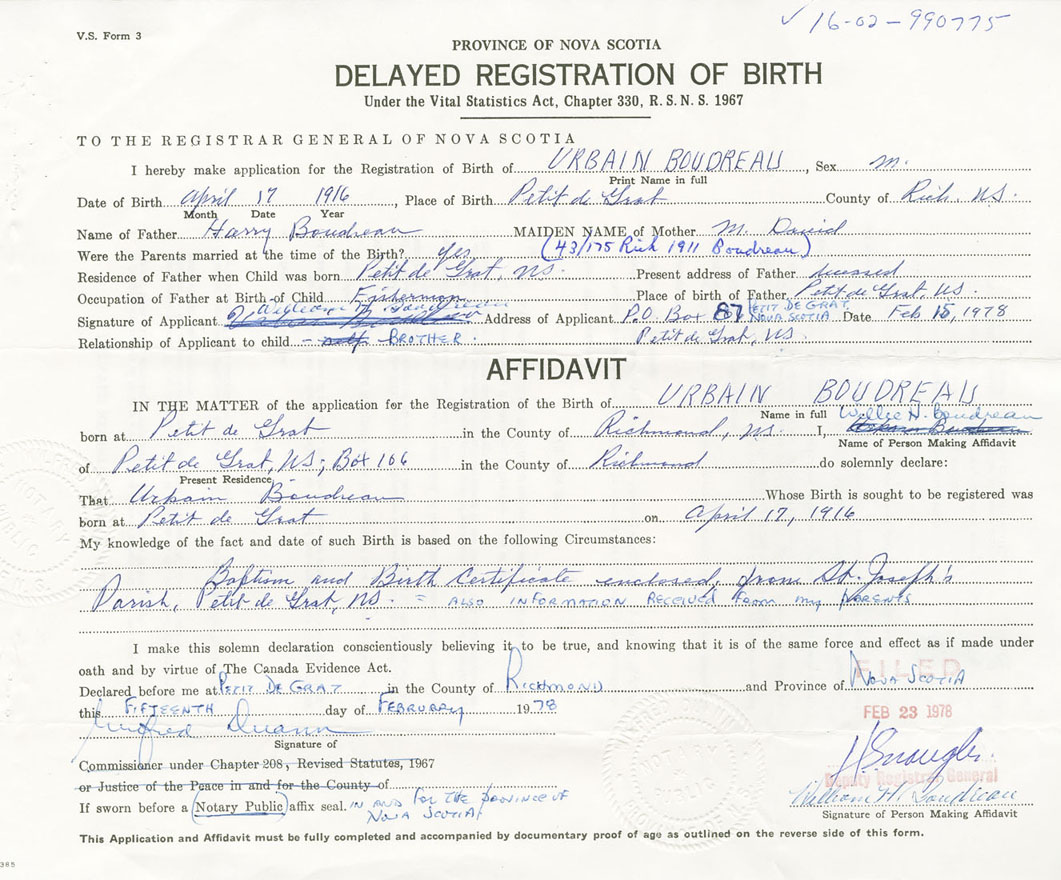 ✓ 16-02-990775
V.S. Form 3
PROVINCE OF NOVA SCOTIA
DELAYED REGISTRATION OF BIRTH
Under the Vital Statistics Act, Chapter 330, R. S. N. S. 1967
TO THE REGISTRAR GENERAL OF NOVA SCOTIA
I hereby make application for the Registration of Birth of URBAIN BOUDREAU, Sex M.
Print Name in full
Date of Birth April 17 1916, Place of Birth Petit de Grat County of Rich. NS.
Month Date Year
Name of Father Harry Boudreau MAIDEN NAME of Mother M. David
Were the Parents married at the time of the Birth? yes (43/175 Rich 1911 Boudreau)
Residence of Father when Child was born Petit de Grat, NS. Present address of Father deceased
Occupation of Father at Birth of Child Fisherman Place of birth of Father Petit de Grat, NS.
Signature of Applicant Address of Applicant P.O. Box 87 PETIT DE GRAT NOVA SCOTIA Date Feb 15, 1978
Relationship of Applicant to child - self - BROTHER. Petit de Grat, NS.
AFFIDAVIT
IN THE MATTER of the application for the Registration of the Birth of URBAIN BOUDREAU
Name in full Willie H. Boudreau
born at Petit de Grat in the County of Richmond, NS. I, Urbain Boudreau
Name of Person Making Affidavit
of Petit de Grat, NS; Box 106 in the County of Richmond do solemnly declare:
Present Residence
That Urbain Boudreau Whose Birth is sought to be registered was
born at Petit de Grat on April 17, 1916
My knowledge of the fact and date of such Birth is based on the following Circumstances:
Baptism and Birth Certificate enclosed, from St. Joseph's
Parish, Petit de Grat, NS. = ALSO INFORMATION RECEIVED FROM MY PARENTS
I make this solemn declaration conscientiously believing it to be true, and knowing that it is of the same force and effect as if made under
oath and by virtue of The Canada Evidence Act.
Declared before me at PETIT DE GRAT in the County of RICHMOND and Province of NOVA SCOTIA
FILED
this FIFTEENTH day of FEBRUARY 1978
FEB 23 1978
Signature of
Commissioner under Chapter 208, Revised Statutes, 1967
or Justice of the Peace in and for the County of
Deputy Registrar General
If sworn before a Notary Public affix seal. IN AND FOR THE PROVINCE OF
NOVA SCOTIA
William H. Boudreau
Signature of Person Making Affidavit
This Application and Affidavit must be fully completed and accompanied by documentary proof of age as outlined on the reverse side of this form.
385